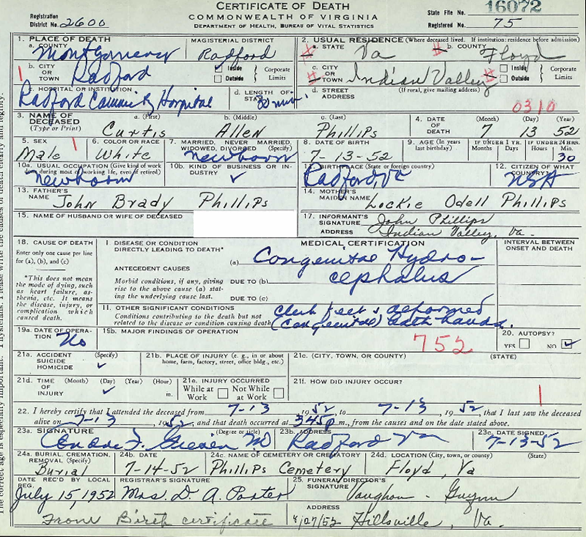 CERTIFICATE OF DEATH
COMMONWEALTH OF VIRGINIA
DEPARTMENT OF HEALTH, BUREAU OF VITAL STATISTICS
Registration District No. 2600
State File No. 16072
Registered No. 75
1. PLACE OF DEATH
a. COUNTY Montgomery
MAGISTERIAL DISTRICT Radford
2. USUAL RESIDENCE (Where deceased lived. If institution: residence before admission)
a. STATE Va
b. COUNTY Floyd
b. CITY OR TOWN Radford
Inside Outside Corporate Limits
c. CITY OR TOWN Indian Valley
Inside Outside Corporate Limits
HOSPITAL OR INSTITUTION Radford Community Hospital
d. LENGTH OF STAY 30 min
d. STREET ADDRESS (If rural, give mailing address)
0310
3. NAME OF DECEASED (Type or Print)
a. (First) Curtis
b. (Middle) Allen
c. (Last) Phillips
4. DATE OF DEATH (Month) (Day) (Year) 7 13 52
5. SEX Male
6. COLOR OR RACE White
7. MARRIED, NEVER MARRIED, WIDOWED, DIVORCED newborn
8. DATE OF BIRTH 7-13-52
9. AGE (In years last birthday)
IF UNDER 1 YEAR Months Days
IF UNDER 24 HRS. Hours Min. 30
10a. USUAL OCCUPATION (Give kind of work during most of working life, even if retired) newborn
10b. KIND OF BUSINESS OR INDUSTRY
11. BIRTHPLACE (State or foreign country) Radford, Va
12. CITIZEN OF WHAT COUNTRY? USA
13. FATHER'S NAME John Brady Phillips
14. MOTHER'S MAIDEN NAME Lockie Odell Phillips
15. NAME OF HUSBAND OR WIFE OF DECEASED
17. INFORMANT'S SIGNATURE John Phillips
Indian Valley, Va.
18. CAUSE OF DEATH
Enter only one cause per line for (a), (b), and (c)
*This does not mean the mode of dying, such as heart failure, asthenia, etc. It means the disease, injury, or complication which caused death.
MEDICAL CERTIFICATION
INTERVAL BETWEEN ONSET AND DEATH
I DISEASE OR CONDITION DIRECTLY LEADING TO DEATH*
(a) Congenital Hydrocephalus
ANTECEDENT CAUSES
Morbid conditions, if any, giving rise to the above cause (a) stating the underlying cause last.
DUE TO (b)
DUE TO (c)
II OTHER SIGNIFICANT CONDITIONS
Conditions contributing to the death but not related to the disease or condition causing death.
club feet & deformed
(congenital) both hands.
19a. DATE OF OPERATION No
19b. MAJOR FINDINGS OF OPERATION
752
20. AUTOPSY? YES NO
21a. ACCIDENT SUICIDE HOMICIDE (Specify)
21b. PLACE OF INJURY (e.g., in or about home, farm, factory, street, office bldg., etc.)
21c. (CITY, TOWN, OR COUNTY) (STATE)
21d. TIME OF INJURY (Month) (Day) (Year) (Hour) m.
21e. INJURY OCCURRED While at Work Not While at Work
21f. HOW DID INJURY OCCUR?
22. I hereby certify that I attended the deceased from 7-13 1952, to 7-13, 1952, that I last saw the deceased
alive on 7-13, 1952, and that death occurred at 345 p m., from the causes and on the date stated above.
23a. SIGNATURE (Degree or title) M D
23b. ADDRESS Radford Va
23c. DATE SIGNED 7-13-52
24a. BURIAL, CREMATION, REMOVAL (Specify) Burial
24b. DATE 7-14-52
24c. NAME OF CEMETERY OR CREMATORY Phillips Cemetery
24d. LOCATION (City, town, or county) (State) Floyd Va
DATE REC'D BY LOCAL REG. July 15, 1952
REGISTRAR'S SIGNATURE Mrs. D. A. Porter
25. FUNERAL DIRECTOR'S SIGNATURE Vaughan - Guynn
From Birth certificate
Hillsville, Va.